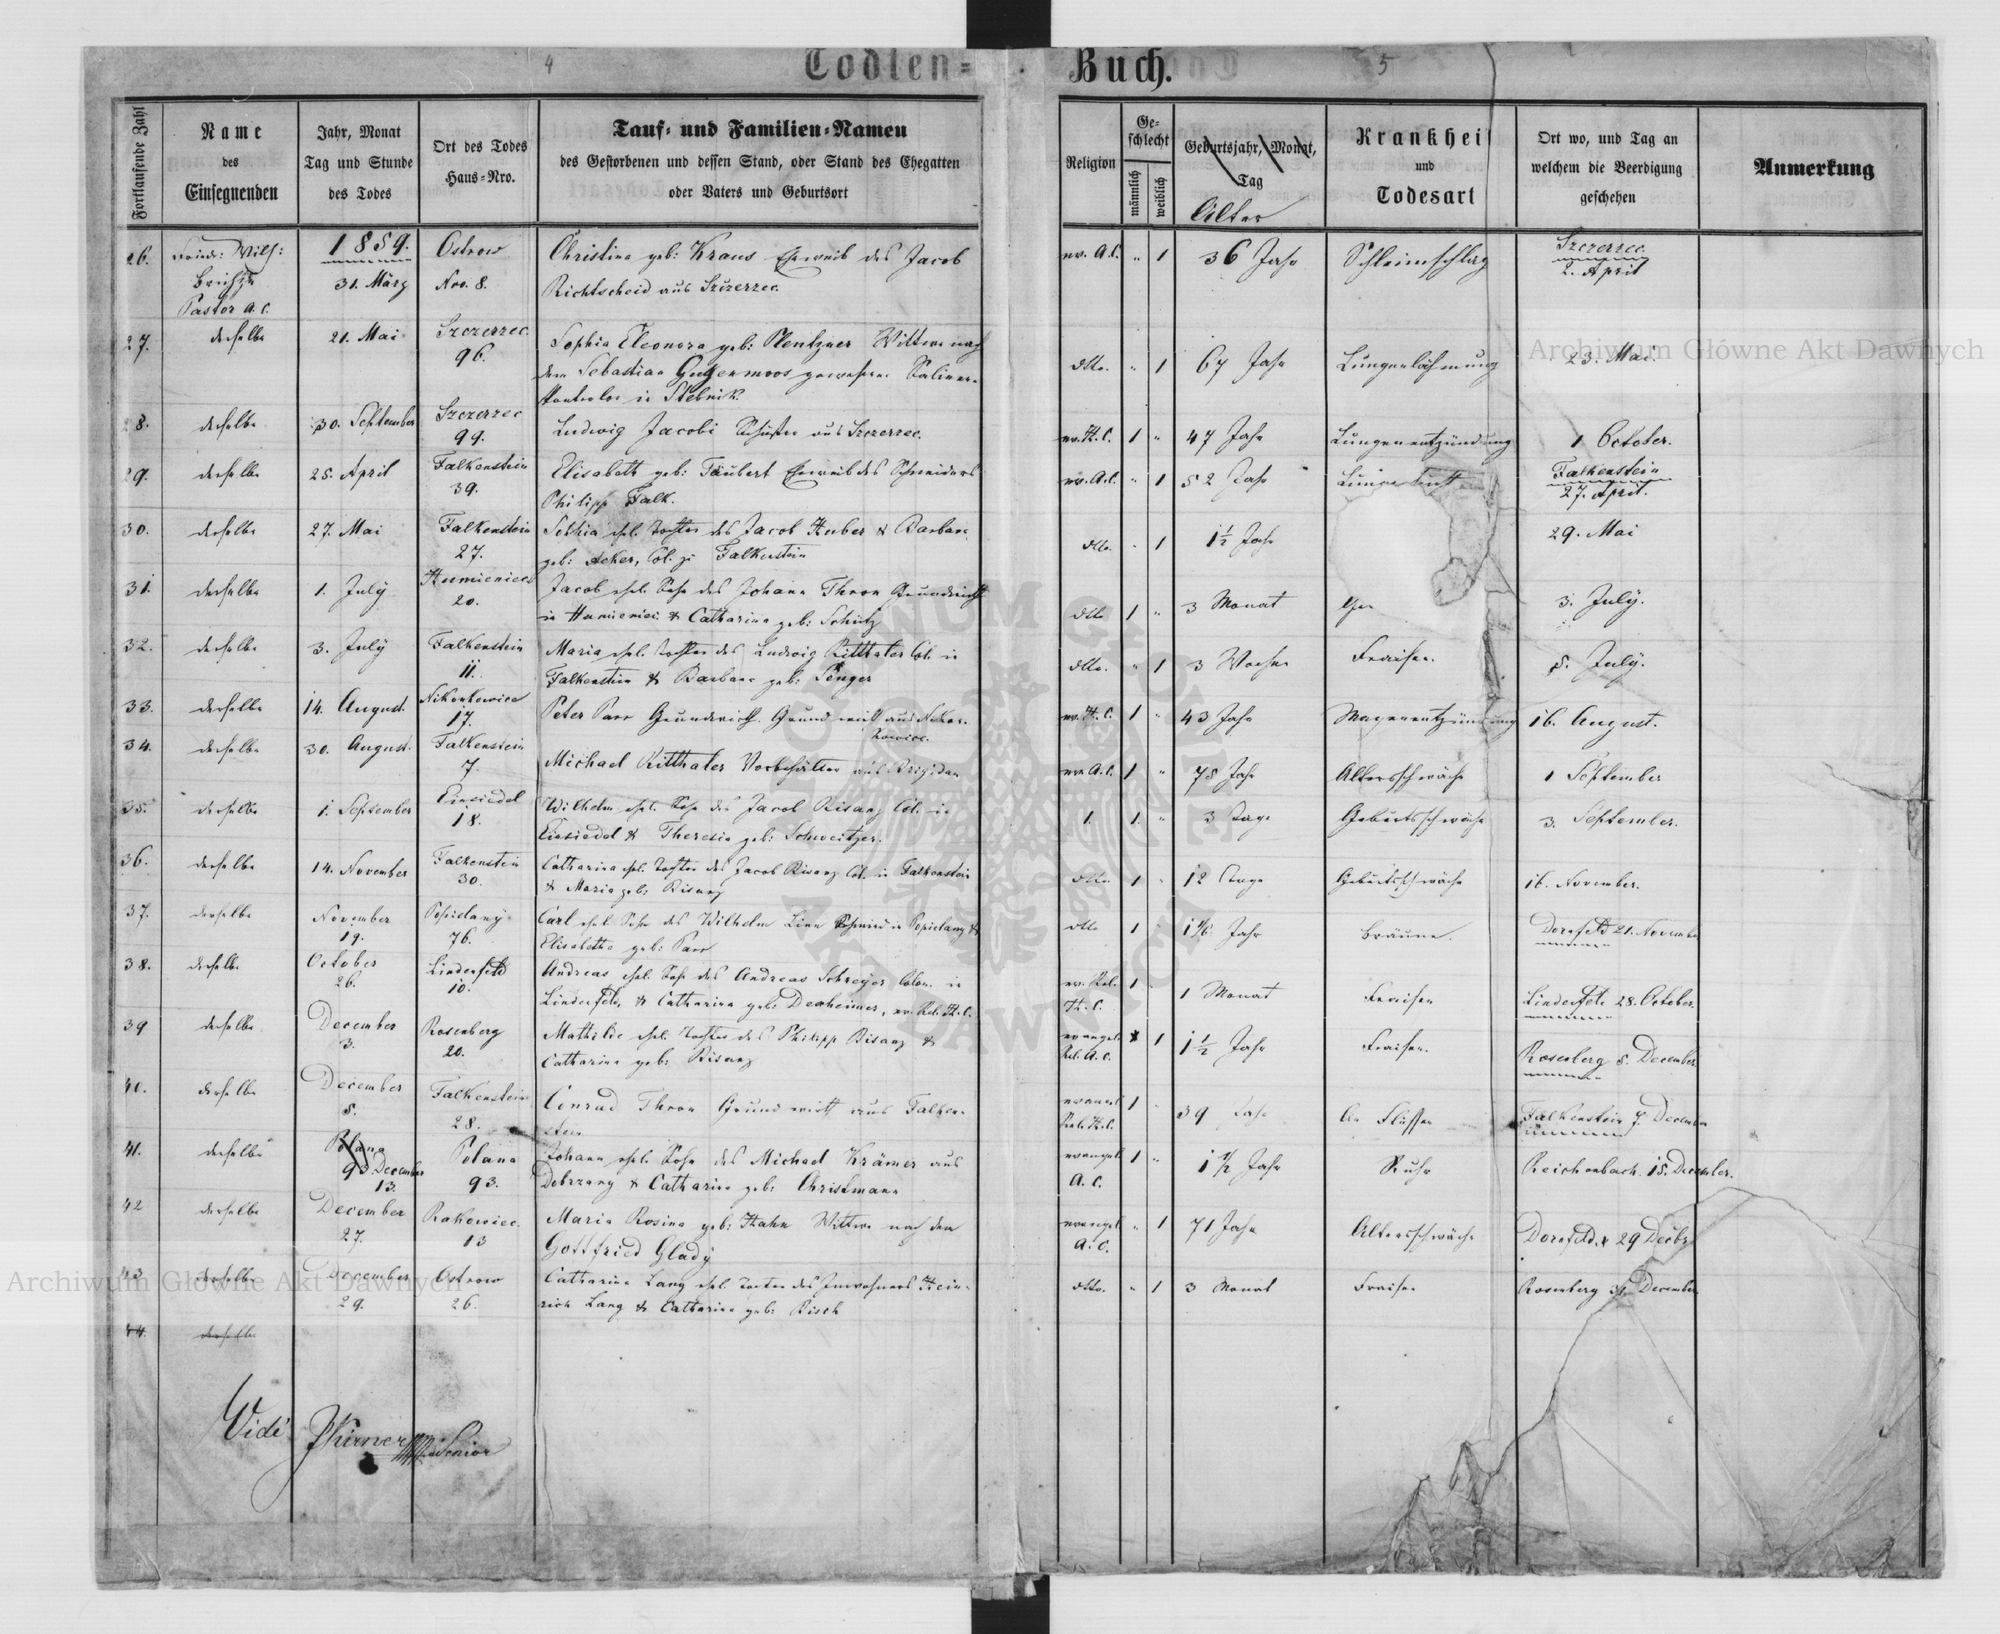 4
Todten-Buch.
5
Fortlaufende Zahl
Name des Einsegnenden
Jahr, Monat Tag und Stunde des Todes
Ort des Todes Haus-Nro.
Tauf- und Familien-Namen
des Gestorbenen und dessen Stand, oder Stand des Ehegatten
oder Vaters und Geburtsort
Religion
Geschlecht
männlich
weiblich
Geburtsjahr, Monat, Tag
Alter
Krankheit und Todesart
Ort wo, und Tag an welchem die Beerdigung geschehen
Anmerkung
26. Wilh: 1859. Ostrow Christina geb: Kraus Eheweib des Jacob ev. A.C. " 1 36 Jahr Schleimschlag Szczerzec
Pastor A.C. 31. März Nro. 8. Richtscheid aus Szczerzec 2. April
27. derselbe 21. Mai Szczerzec 96. Sophia Eleonora geb: Plentzner Wittwe nach
dem Sebastian Gugenmoos gewesenen Salinen- dtto. " 1 67 Jahr Lungenlähmung 23. Mai.
in Stebnik.
28. derselbe 30. September Szczerzec 99. Ludwig Jacobi Schuster aus Szczerzec. ev. H.C. 1 " 47 Jahr Lungenentzündung 1 October.
29. derselbe 25. April Falkenstein 39. Elisabeth geb: Täubert Eheweib des Schneiders ev. A.C. " 1 52 Jahr Falkenstein
Philipp Falk. 27. April.
30. derselbe 27. Mai Falkenstein 27. Sophia ehel. Tochter des Jacob Huber & Barbara
geb: Acker, Col. zu Falkenstein dtto. " 1 1½ Jahr 29. Mai
31. derselbe 1. July Humieniec 20. Jacob ehel. Sohn des Johann Thron Grundwirth
in Humieniec & Catharina geb: Schütz dtto 1 " 3 Monat 3. July.
32. derselbe 3. July Falkenstein 11. Maria ehel. Tochter des Ludwig Ritthaler Col. in
Falkenstein & Barbara geb: Penger dtto. " 1 3 Wochen Fraisen. 5. July.
33. derselbe 14. August Nikonkowice 17. Peter Parr Grundwirth ev. H.C. 1 " 43 Jahr Magenentzündung 16. August.
34. derselbe 30. August. Falkenstein 7. Michael Ritthaler aus Brigidau ev. A.C. 1 " 78 Jahr Altersschwäche 1 September
35. derselbe 1. September Einsiedel 18. Wilhelm ehel. Sohn des Jacob Bisanz Col. in
Einsiedel & Theresia geb: Schweitzer. 1. 1. " 3 Tage Geburtsschwäche 3. September.
36. derselbe 14. November Falkenstein 30. Catharina ehel. Tochter des Jacob Bisanz Col. in Falkenstein
& Maria geb: Bisanz dtto. 1 " 12 Tage Geburtsschwäche 16. November.
37. derselbe November 19. Popielany 76. Carl ehel. Sohn des Wilhelm Linn Schmied in Popielany &
Elisabetha geb: Parr dtto 1 Jahr Bräune. Dornfeld 21. November
38. derselbe October 26. Lindenfeld 10. Andreas ehel. Sohn des Andreas Schreyer Colon. in
Lindenfeld, & Catharina geb: Dexheimer, ev. Rel. H.C. ev. Rel. H.C. 1 1 Monat Fraisen Lindenfeld. 28. October.
39 derselbe December 3. Rosenberg 20. Mathilde ehel. Tochter des Philipp Bisanz &
Catharina geb: Bisanz evangel. Rel. A.C. 1 1½ Jahr Fraisen. Rosenberg 5. December.
40. derselbe December 5. Falkenstein 28. Conrad Thron Grundwirth aus Falkenstein evangel Rel. H.C. 1 39 Jahr Falkenstein 7. December
41. derselbe Polana 93 December 13 Polana 93. Johann ehel. Sohn des Michael Krämer aus
Dobrzany & Catharina geb: Christmann evangel A.C. 1 " 1½ Jahr Ruhr Reichenbach. 15. December.
42 derselbe December 27. Rakowiec. 13 Maria Rosina geb: Hahn Wittwe nach dem
Gottfried Glady evangel A.C. " 1 71 Jahr Altersschwäche Dornfeld. 29 Decbr
43 derselbe December 29. Ostrow 26. Catharina Lang ehel. Tochter des Inwohners Heinrich
Lang & Catharina geb: Risch dtto. " 1 3 Monat Fraisen Rosenberg 31. December
44. derselbe
Vidi Senior
Archiwum Główne Akt Dawnych
Archiwum Główne Akt Dawnych
ARCHIWUM GŁÓWNE AKT DAWNYCH